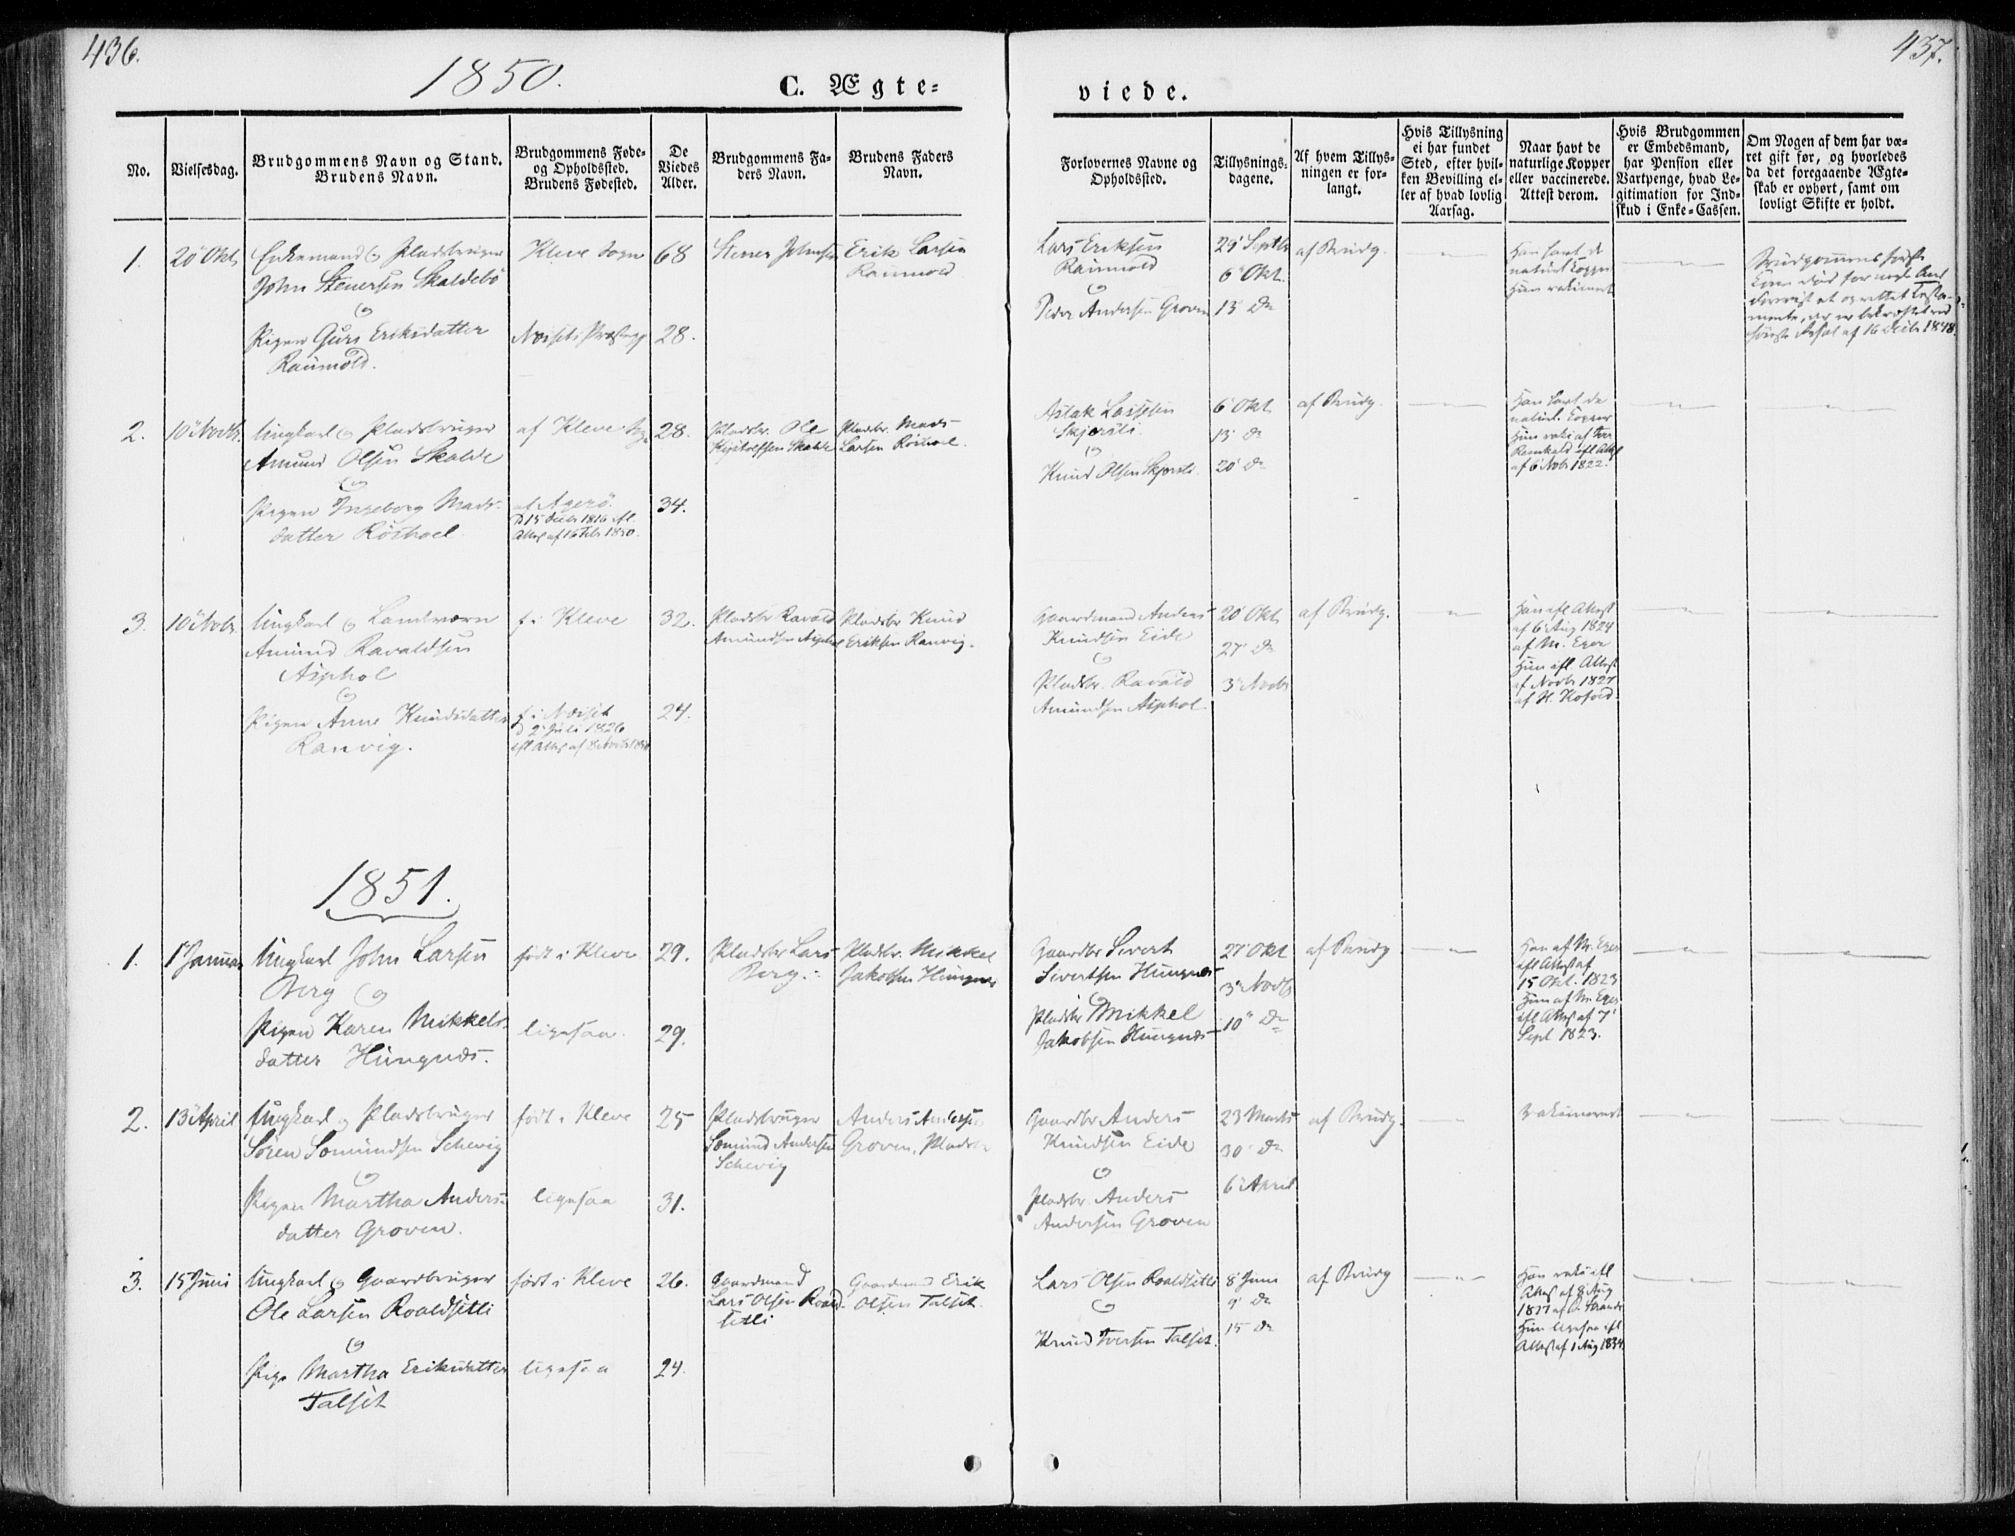 436.
437.
1850.
C. Ægte=
viede.
No.
Vielsesdag.
Brudgommens Navn og Stand.
Brudens Navn.
Brudgommens Føde-
og Opholdssted.
Brudens Fødested.
De
Viedes
Alder.
Brudgommens Fa-
ders Navn.
Brudens Faders
Navn.
Forlovernes Navne og
Opholdssted.
Tillysnings-
dagene.
Af hvem Tillys-
ningen er for-
langt.
Hvis Tillysning
ei har fundet
Sted, efter hvil-
ken Bevilling el-
ler af hvad lovlig
Aarsag.
Naar havt de
naturlige Kopper
eller vaccinerede.
Attest derom.
Hvis Brudgommen
er Embedsmand,
har Pension eller
Vartpenge, hvad Le-
gitimation for Ind-
skud i Enke-Cassen.
Om Nogen af dem har væ-
ret gift før, og hvorledes
da det foregaaende Ægte-
skab er ophørt, samt om
lovligt Skifte er holdt.
1.
20 Okt
Enkemand og Pladsbruger
John Stenersen Skaldebø
og
Pigen Guri Eriksdatter
Raumold.
Kleve Sogn
68
28.
Stener Johnsen
Erik Larsen
Raumold
Lars Eriksen
Raumold
og
Peder Andersen Groven
29 Septbr
6 Okt.
13 do
af Brudg.
Han havt de
naturl Kopper
Hun vakineret
Brudgommens første
Kone død
af 16 Decbr 1848.
2.
10 Novbr.
Ungkarl og Pladsbruger
Amund Olsen Skalde
og
Pigen Ingeborg Mads-
datter Röshoel.
af Kleve Sogn
af Agerö.
d 15 Decbr 1816 efl.
Attest af 16 Febr 1850.
28.
34.
Pladsbr. Ole
Skalde
Pladsbr. Mads
Larsen Röshoel.
Aslak Lassesen
Skjorsli
og
Knud Olsen Skjorsli.
6 Okt
13 do
20 do
af Brudg.
Han havt de
naturl. Kopper
Hun vaki af
efl Attest
af 6 Novbr 1822.
3.
10 Novbr.
Ungkarl og Landværn
Amund Ravaldsen
Aiphol
og
Pigen Anne Knudsdatter
Ranvig.
f. i Kleve
f. i Næsset
d 2 Juli 1826
efl Attest af 8 Novbr 1850
32.
24.
Pladsbr Ravald
Amundsen Aiphol
Pladsbr Knud
Eriksen Ranvig.
Gaardmand Anders
Knudsen Eide
og
Pladsbr. Ravald
Amundsen Aiphol.
20 Okt
27 do
3 Novbr
af Brudg.
Han efl Attest
af 6 Aug 1824
af M. Eger
Hun efl. Attest
af Novbr 1827
af H. Kofoed.
1851.
1.
1 Januar
Ungkarl John Larsen
Berg og
Pigen Karen Mikkels-
datter Hungnæs.
født i Kleve
ligesaa.
29.
29.
Pladsbr Lars
Berg.
Pladsbr. Mikkel
Jakobsen Hungnæs
Gaardbr Sivert
Sivertsen Hungnæs
og
Pladsbr Mikkel
Jakobsen Hungnæs
27 Okt
3 Novbr
10 do
af Brudg
Han af M. Eger
efl Attest af
15 Okt. 1823
Hun af M. Eger
efl Attest af 7
Sept 1823.
2.
13 April
Ungkarl og Pladsbruger
Sören Somundsen Schevig
og
Pigen Martha Anders-
datter Groven.
født i Kleve
ligesaa
25
31.
Pladsbruger
Somund Andersen
Schevig
Anders Andersen
Groven, Pladsbr
Gaardbr Anders
Knudsen Eide
og
Pladsbr. Anders
Andersen Groven
23 Marts
30 do
6 April
af Brudg.
vakineret
3.
15 Juni
Ungkarl og Gaardbruger
Ole Larsen Roaldsetli
og
Pige Martha Eriksdatter
Talset
født i Kleve
ligesaa
26.
24.
Gaardmand
Lars Olsen Roald-
setli
Gaardmand Erik
Olsen Talset.
Lars Olsen Roaldsetli
og
Knud Iversen Talset.
8 Juni
9 do
15 do
af Brudg
Han vaki efl
Attest af 8 Aug
Hun ligesaa efl
Attest af 1 Aug 1834.